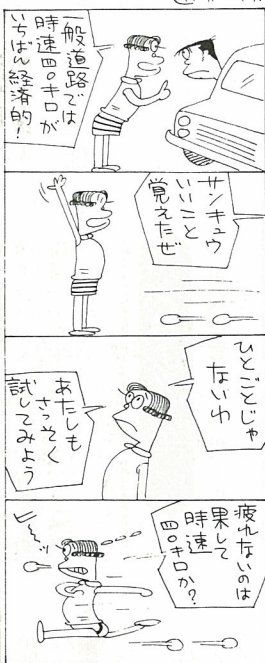 一般道路では
時速四〇キロが
いちばん経済的!
サンキュウ
いいこと
覚えたぜ
ひとごとじゃ
ないわ
あたしも
さっそく
試してみよう
疲れないのは
果して
時速
四〇キロか?
ヒーッ